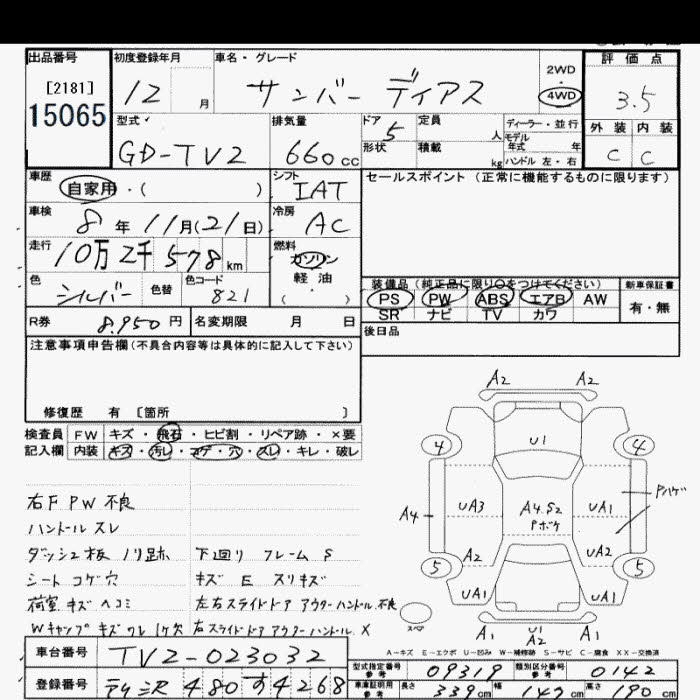 出品番号 初度登録年月 車名・グレード 2WD・4WD 評価点
[2181]
15065 12 月 サンバー ディアス 3.5
型式 排気量 ドア 5 定員 人 ディーラー・並行 外装 内装
モデル年式 年
GD-TV2 660cc 形状 積載 kg ハンドル 左・右 C C
車歴 シフト セールスポイント (正常に機能するものに限ります)
自家用・( ) IAT
車検 8年 11月(21日) 冷房 AC
走行 10万2千578km 燃料 ガソリン
軽油
( )
色 シルバー 色替 色コード 821
装備品 (純正品に限り○をつけてください) 新車保証書
PS PW ABS エアB AW 有・無
SR ナビ TV カワ
R券 8.950円 名変期限 月 日
後日品
注意事項申告欄(不具合内容等は具体的に記入して下さい)
修復歴 有 〔箇所 〕
検査員 FW キズ・飛石・ヒビ割・リペア跡・×要
記入欄 内装 キズ・汚レ・コゲ・穴・スレ・キレ・破レ
右F PW 不良
ハンドル スレ
ダッシュ板 ノリ跡 下回り フレーム S
シート コゲ穴 キズ E スリキズ
荷室 キズ ヘコミ 左右スライドドア アウターハンドル 不良
Wキャップ キズ ワレ 1ケ欠 右スライドドア アウターハンドル X
A2 A2
4 U1 4
A4 UA3 A4.S2 UA1 Pハゲ
Pボケ
A2 UA2
5 5
UA1 UA1
スペア A1 U1 A1
A2
A-キズ E-エクボ U-凹み W-補修跡 S-サビ C-腐食 XX-交換済
車台番号 TV2-023032
型式指定番号 参考 09319 類別区分番号 参考 0142
登録番号 480 す 4268
車庫証明用 参考 長さ 339cm 幅 147cm 高さ 190cm